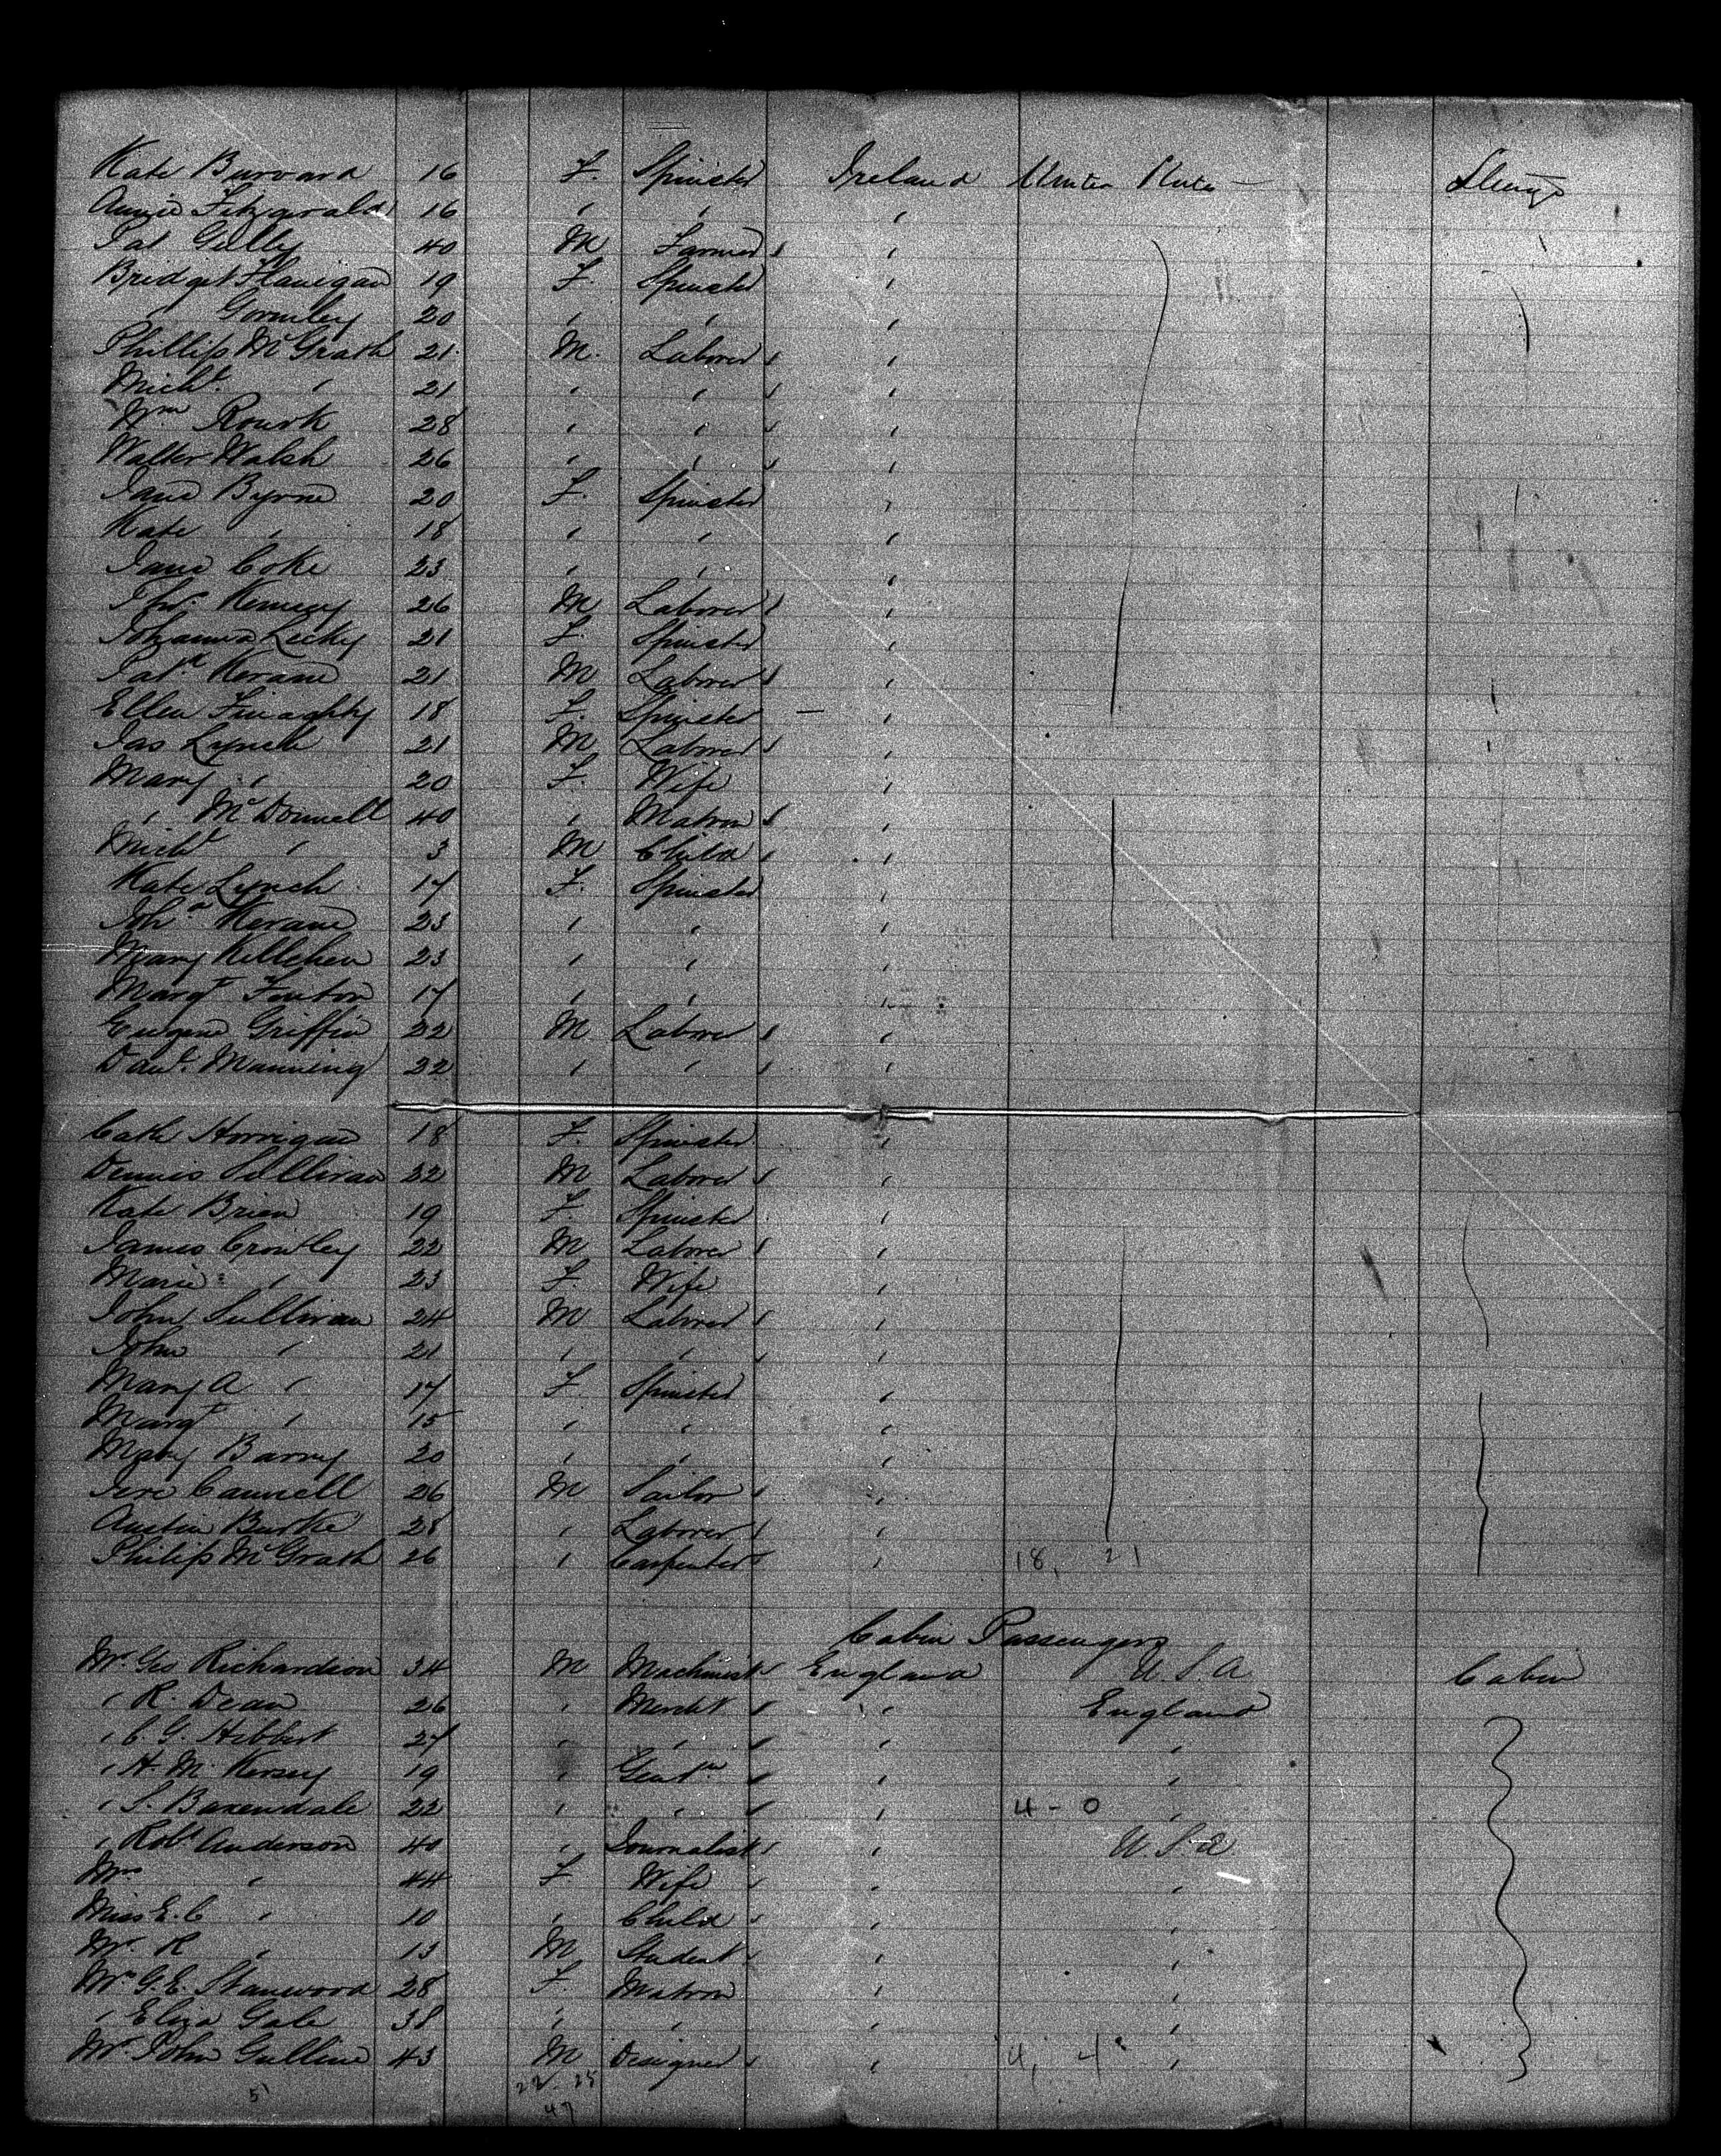 Kate Burvard 16 F. Spinster Ireland United States Steerage
Annie Fitzgerald 16 " " "
Pat Gully 40 M Farmer "
Bridget Flanigan 19 F. Spinster "
" Gormley 20 " " "
Phillip McGrath 21 M. Laborer "
Michl " 21 " " "
Wm Rourk 28 " " "
Walter Walsh 26 " " "
Jane Byrne 20 F. Spinster "
Kate " 18 " " "
Jane Coke 23 " " "
Thos. 26 M Laborer "
Johanna Lecky 21 F. Spinster "
Patk Kerane 21 M Laborer "
Ellen Finaghty 18 F. Spinster "
Jas Lynch 21 M Laborer "
Mary " 20 F. Wife "
" McDonnell 40 " Matron "
Michl " 3 M Child "
Kate Lynch 17 F. Spinster "
Joha Kerane 23 " " "
Mary Killehen 23 " " "
Margt Fenton 17 " " "
Eugene Griffin 22 M Laborer "
Danl. Manning 22 " " "
Cath Horrigan 18 F. Spinster "
Dennis Sullivan 22 M Laborer "
Kate Brien 19 F. Spinster "
James Crowley 22 M Laborer "
Marie " 23 F. Wife "
John Sullivan 24 M Laborer "
John " 21 " " "
Mary A " 17 F. Spinster "
Margt " 15 " " "
Mary Barry 20 " " "
Jere Cannell 26 M "
Austin Burke 28 " Laborer "
Philip McGrath 26 " Carpenter " 18, 21
Cabin Passengers
Mr. Geo Richardson 34 M Machinist England U.S.A Cabin
" R. Dean 26 " Mercht " England
" C. G. Hibbert 27 " " " "
" H. M. Kersey 19 " Gentn " "
" S. Baxendale 22 " " " 4-0 "
" Robt Anderson 40 " Journalist " U.S.A.
Mrs " 44 F. Wife " "
Miss E. C " 10 " Child " "
Mr. R " 13 M Student " "
Mrs G. E. Stanwood 28 F. Matron " "
" Eliza Gale 38 " " "
Mr. John Gulline 43 M Designer " 4, 4 "
5 22 25
47